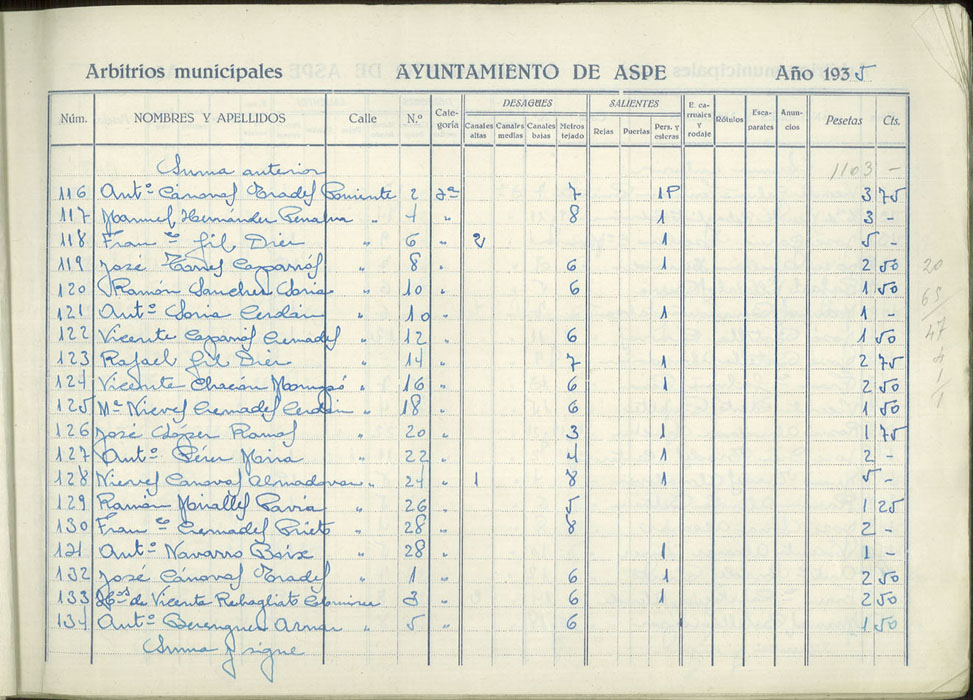 Arbitrios municipales AYUNTAMIENTO DE ASPE Año 1935
Núm. NOMBRES Y APELLIDOS Calle N.º Categoría DESAGUES Canales altas Canales medias Canales bajas Metros tejado SALIENTES Rejas Puertas Pers. y esteras E. carruajes y rodaje Rótulos Escaparates Anuncios Pesetas Cts.
Suma anterior 1103 -
116 Antº Cánovas Prades Poniente 2 3ª 7 1P 3 75
117 Manuel Hernández Penalva " 4 " 8 1 3 -
118 Franco Gil Diez " 6 " 2 1 5 -
119 José Torres Caparrós " 8 " 6 1 2 50
120 Ramón Sanchez Soria " 10 " 6 1 50
121 Antº Soria Cerdán " 10 " 1 1 -
122 Vicente Caparrós Cremades " 12 " 6 1 50
123 Rafael Gil Diez " 14 " 7 1 2 75
124 Vicente Chacón " 16 " 6 1 2 50
125 Mª Nieves Cremades Cerdán " 18 " 6 1 50
126 José López Ramos " 20 " 3 1 1 75
127 Antº Pérez Mira " 22 " 4 1 2 -
128 Nieves Canovas Almadovar " 24 " 1 8 1 5 -
129 Ramón Miralles Pavía " 26 " 5 1 25
130 Franco Cremades Prieto " 28 " 8 2 -
131 Antº Navarro Boix " 28 " 1 1 -
132 José Cánovas Prades " 1 " 6 1 2 50
133 Hos de Vicenta Rebagliato " 3 " 6 1 2 50
134 Antº Berenguer Aznar " 5 " 6 1 50
Suma y sigue
20
65
47
4
1
1